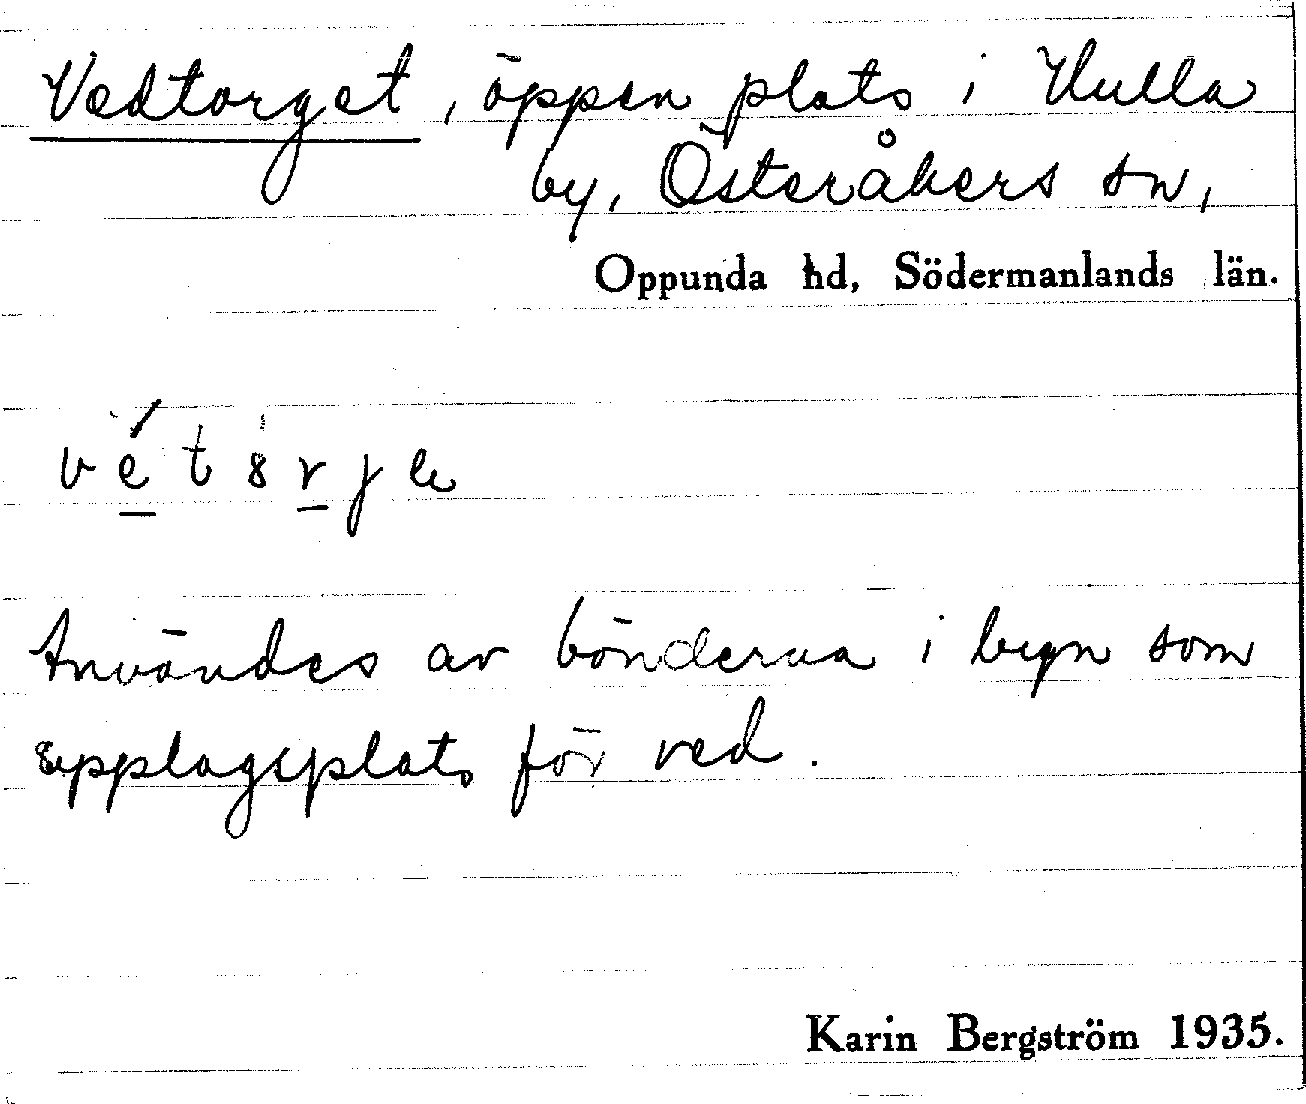 Vedtorget, öppen plats i Hulla
by, Österåkers sn,
Oppunda hd, Södermanlands län.
Användes av bönderna i byn som
upplagsplats för ved.
Karin Bergström 1935.